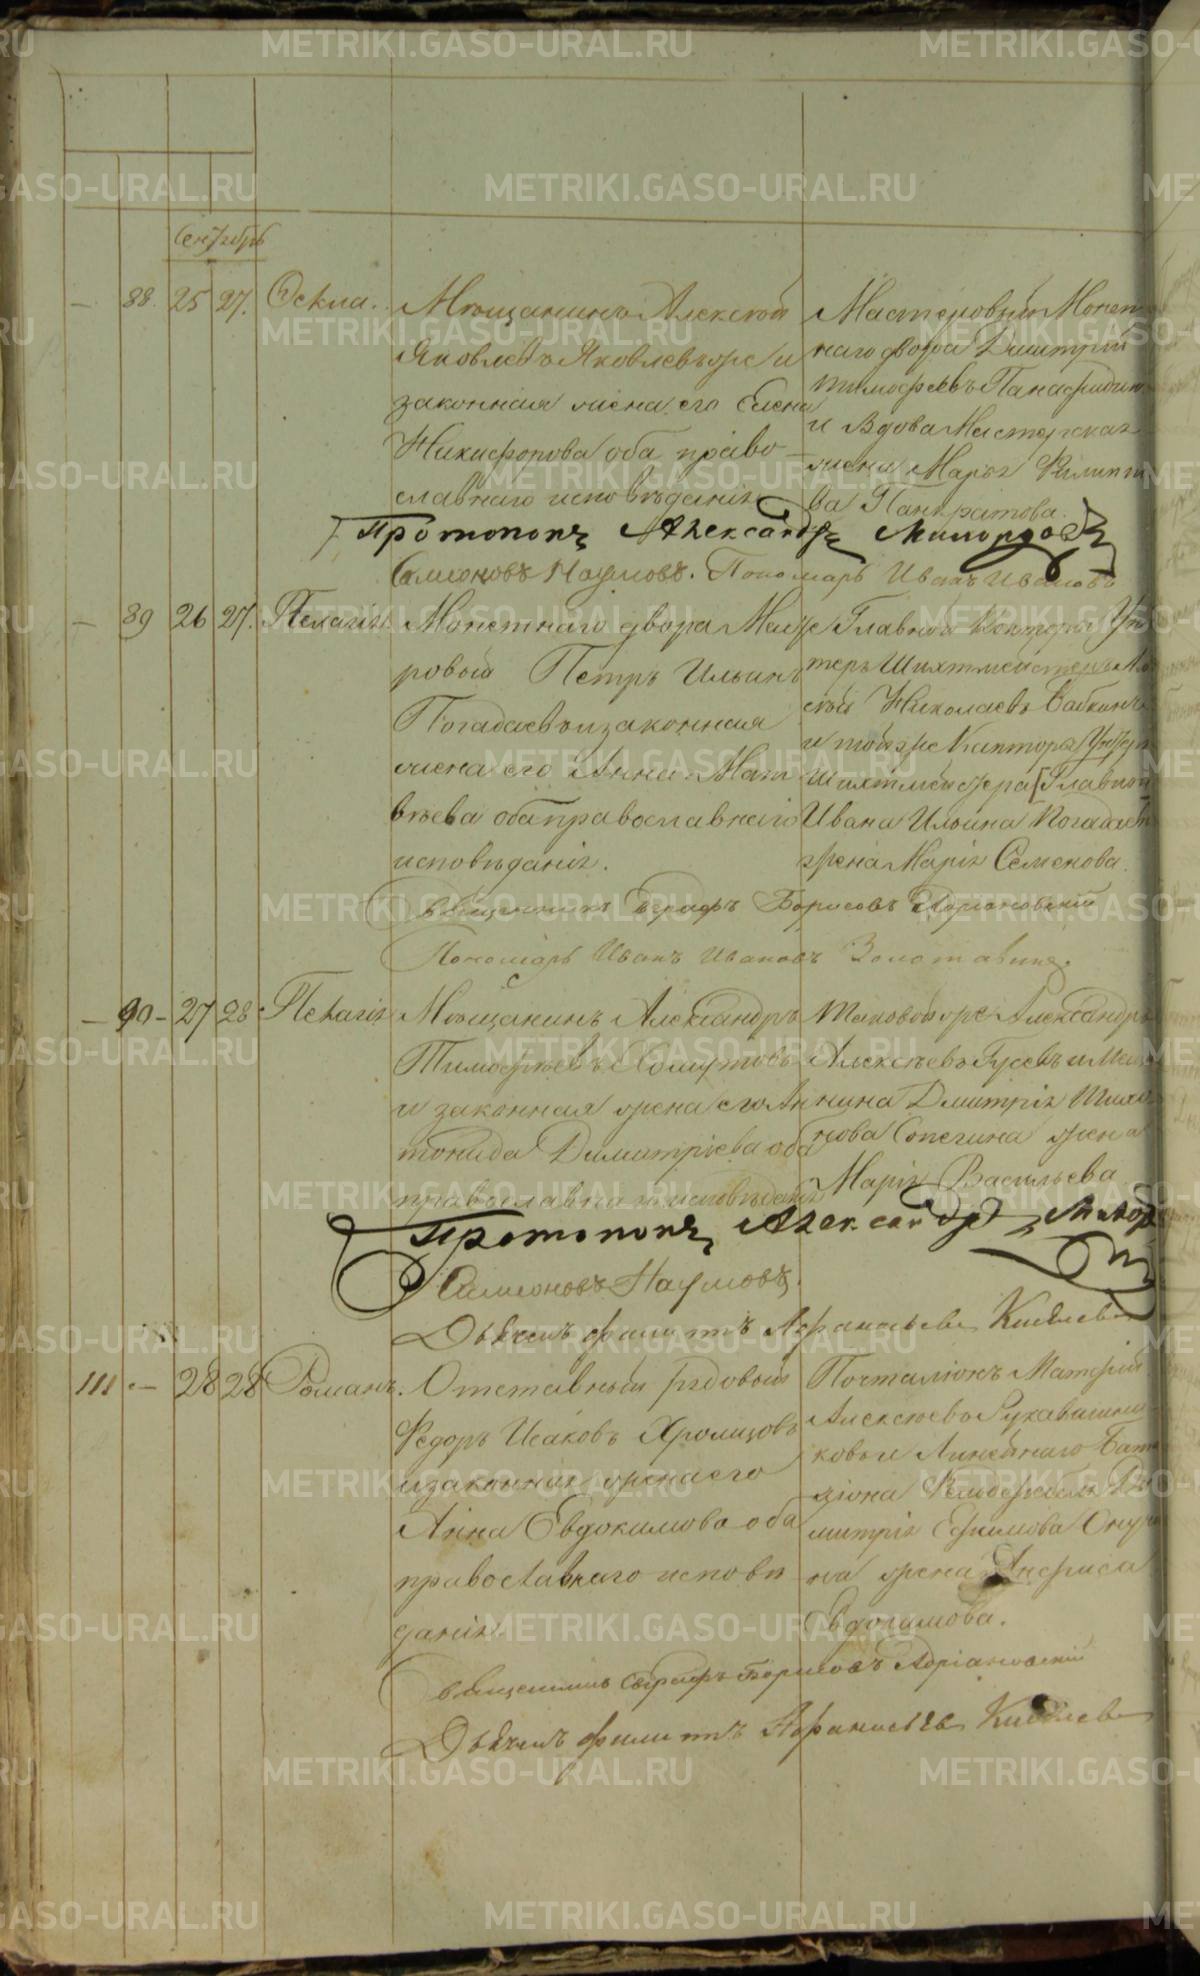 Сентябрь
88. 25 27. Ѳекла.
Мѣщанинъ Алексѣй
Яковлевъ Яковлевъ же и
законная жена его Елена
Никифорова оба право-
славнаго исповѣданія
Мастеровый Монет
наго двора Дмитрій
Тимофѣевъ Панафидин
и Вдова Мастерская
жена Марья Филипо
ва Панкратова.
Протопопъ Александръ
Симеоновъ Наумовъ. Пономарь Иванъ Ивановъ
89 26 27. Пелагія.
Монетнаго двора Масте
ровый Петръ Ильинъ
Погадаевъ и законная
жена его Анна Мат
вѣева оба православнаго
исповѣданія.
Главной Конторы Ун
теръ Шихтмейстеръ Але
ксѣй Николаевъ Бабкинъ
и той же Канторы Унтеръ
Шихтмейстера [Главной
Ивана Ильина Погадаева
жена Марія Семенова.
Священникъ Евграфъ Борисовъ Адріановскій
Пономарь Иванъ Ивановъ Золотавинъ.
90 - 27 28 Пелагія
Мѣщанинъ Александръ
Тимофѣевъ Хомутовъ
и законная жена его Ан
тонида Димитріева оба
православнаго исповѣданія
Таковой же Александръ
Алексѣевъ Гусевъ и Мѣща
нина Дмитрія Тихо
нова Сопегина жена
Марія Васильева
Протопопъ Александръ
Симеоновъ Наумовъ.
Дьячекъ Филиппъ Афанасьевъ Киселевъ
111 - 28 28 Романъ.
Отставный рядовый
Федоръ Исаковъ Хромцовъ
и законная жена его
Анна Евдокимова оба
православнаго исповѣ
данія.
Почталіонъ Матфій
Алексѣевъ Рукавишни
ковъ и Линейнаго Бата
ліона Фельдфебеля Ди
митрія Ефимова
на жена Анфиса
Евдокимова.
Священникъ Евграфъ Борисовъ Адріановскій
Дьячекъ Филиппъ Афанасьевъ Киселевъ
METRIKI.GASO-URAL.RU